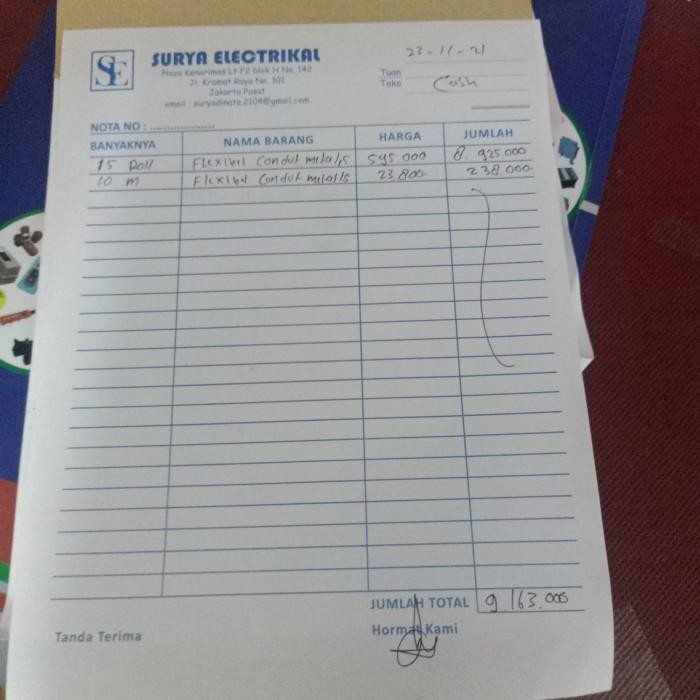 SE
SURYA ELECTRIKAL
Plaza Kenarimas Lt F2 blok H No. 142
Jl. Kramat Raya No. 101
Jakarta Pusat
email : suryadinata.2104@gmail.com
23-11-21
Tuan
Toko Cash
NOTA NO : ....................
BANYAKNYA NAMA BARANG HARGA JUMLAH
15 Roll Flexibil Conduk 595.000 8.925.000
10 m Flexibil Conduk 23.800 238.000
JUMLAH TOTAL 9.163.000
Tanda Terima Hormat Kami